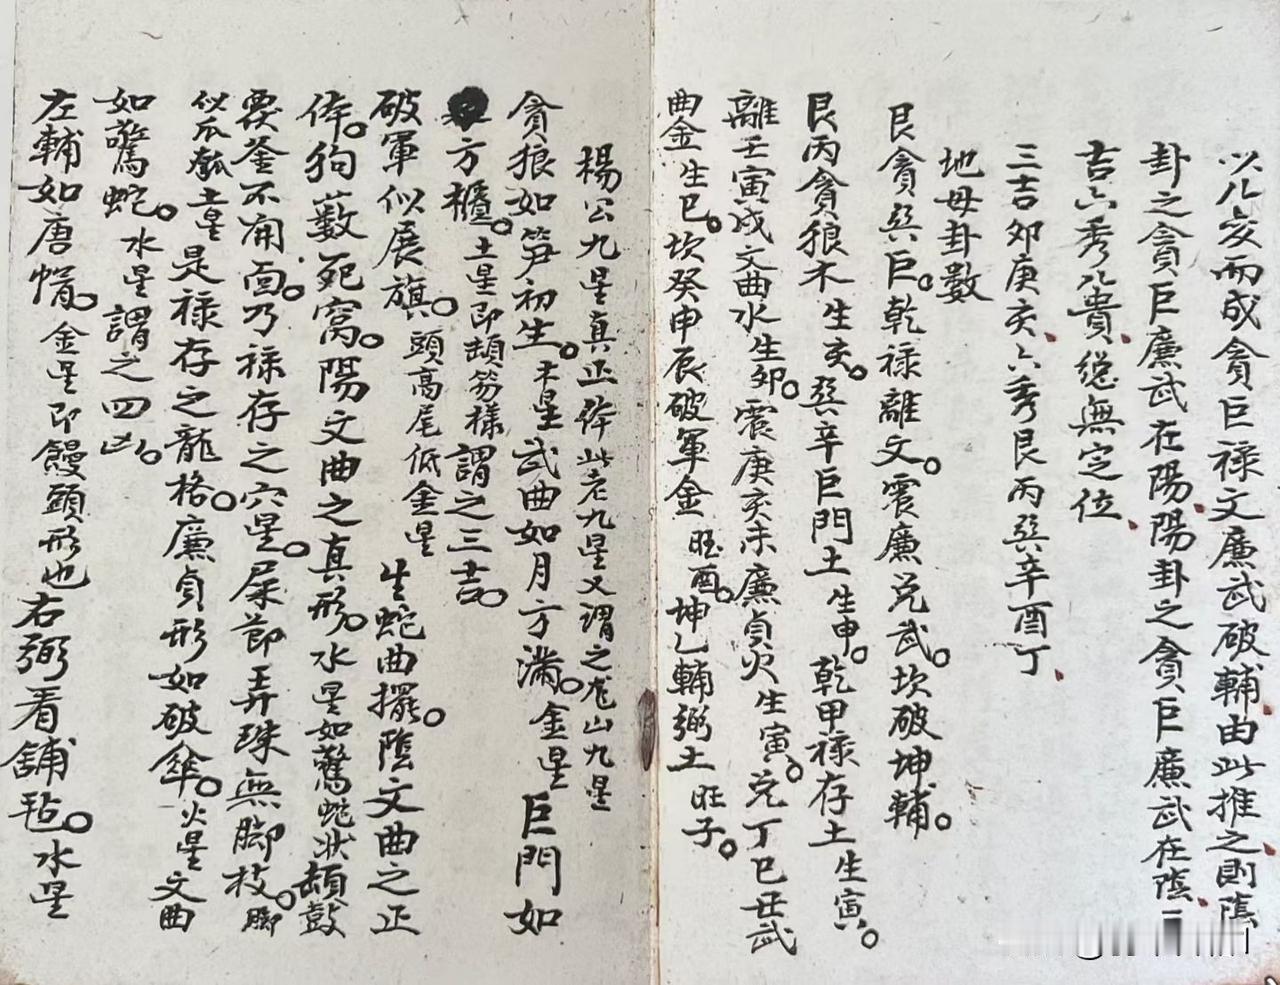 以八爻而成貪巨祿文廉武破輔由此推之則陰
卦之貪巨廉武在陽陽卦之貪巨廉武在陰三
吉六秀八貴總無定位
三吉卯庚亥六秀艮丙巽辛酉丁
地母卦數
艮貪巽巨乾祿離文震廉兌武坎破坤輔
艮丙貪狼木生亥巽辛巨門土生申乾甲祿存土生寅
離壬寅戌文曲水生卯震庚亥未廉貞火生寅兌丁巳丑武
曲金生巳坎癸申辰破軍金旺酉坤乙輔弼土旺子
楊公九星真正体此老九星又謂之龙山九星
貪狼如笋初生木星武曲如月方滿金星巨門如
方櫃土星即頓笏樣謂之三吉
破軍似展旗頭高尾低金星生蛇曲擺陰文曲之正
体狗薮死窝陽文曲之真形水星如驚蛇状頓鼓
覆釜不甫面乃祿存之穴星屎節弄珠無脚枝脚
似瓜瓠土星是祿存之龍格廉貞形如破傘火星文曲
如驚蛇水星謂之四凶
左輔如唐帽金星即饅頭形也右弼看舖毡水星